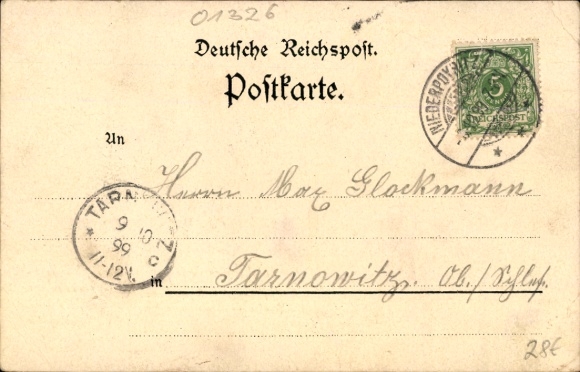 01326
Deutsche Reichspost.
Postkarte.
NIEDERPOYRITZ
5
REICHSPOST
An
Herrn Max Glockmann
TARNOWITZ
9 10
99
11-12V.
c
in Tarnowitz. Ob./Schles.
28€